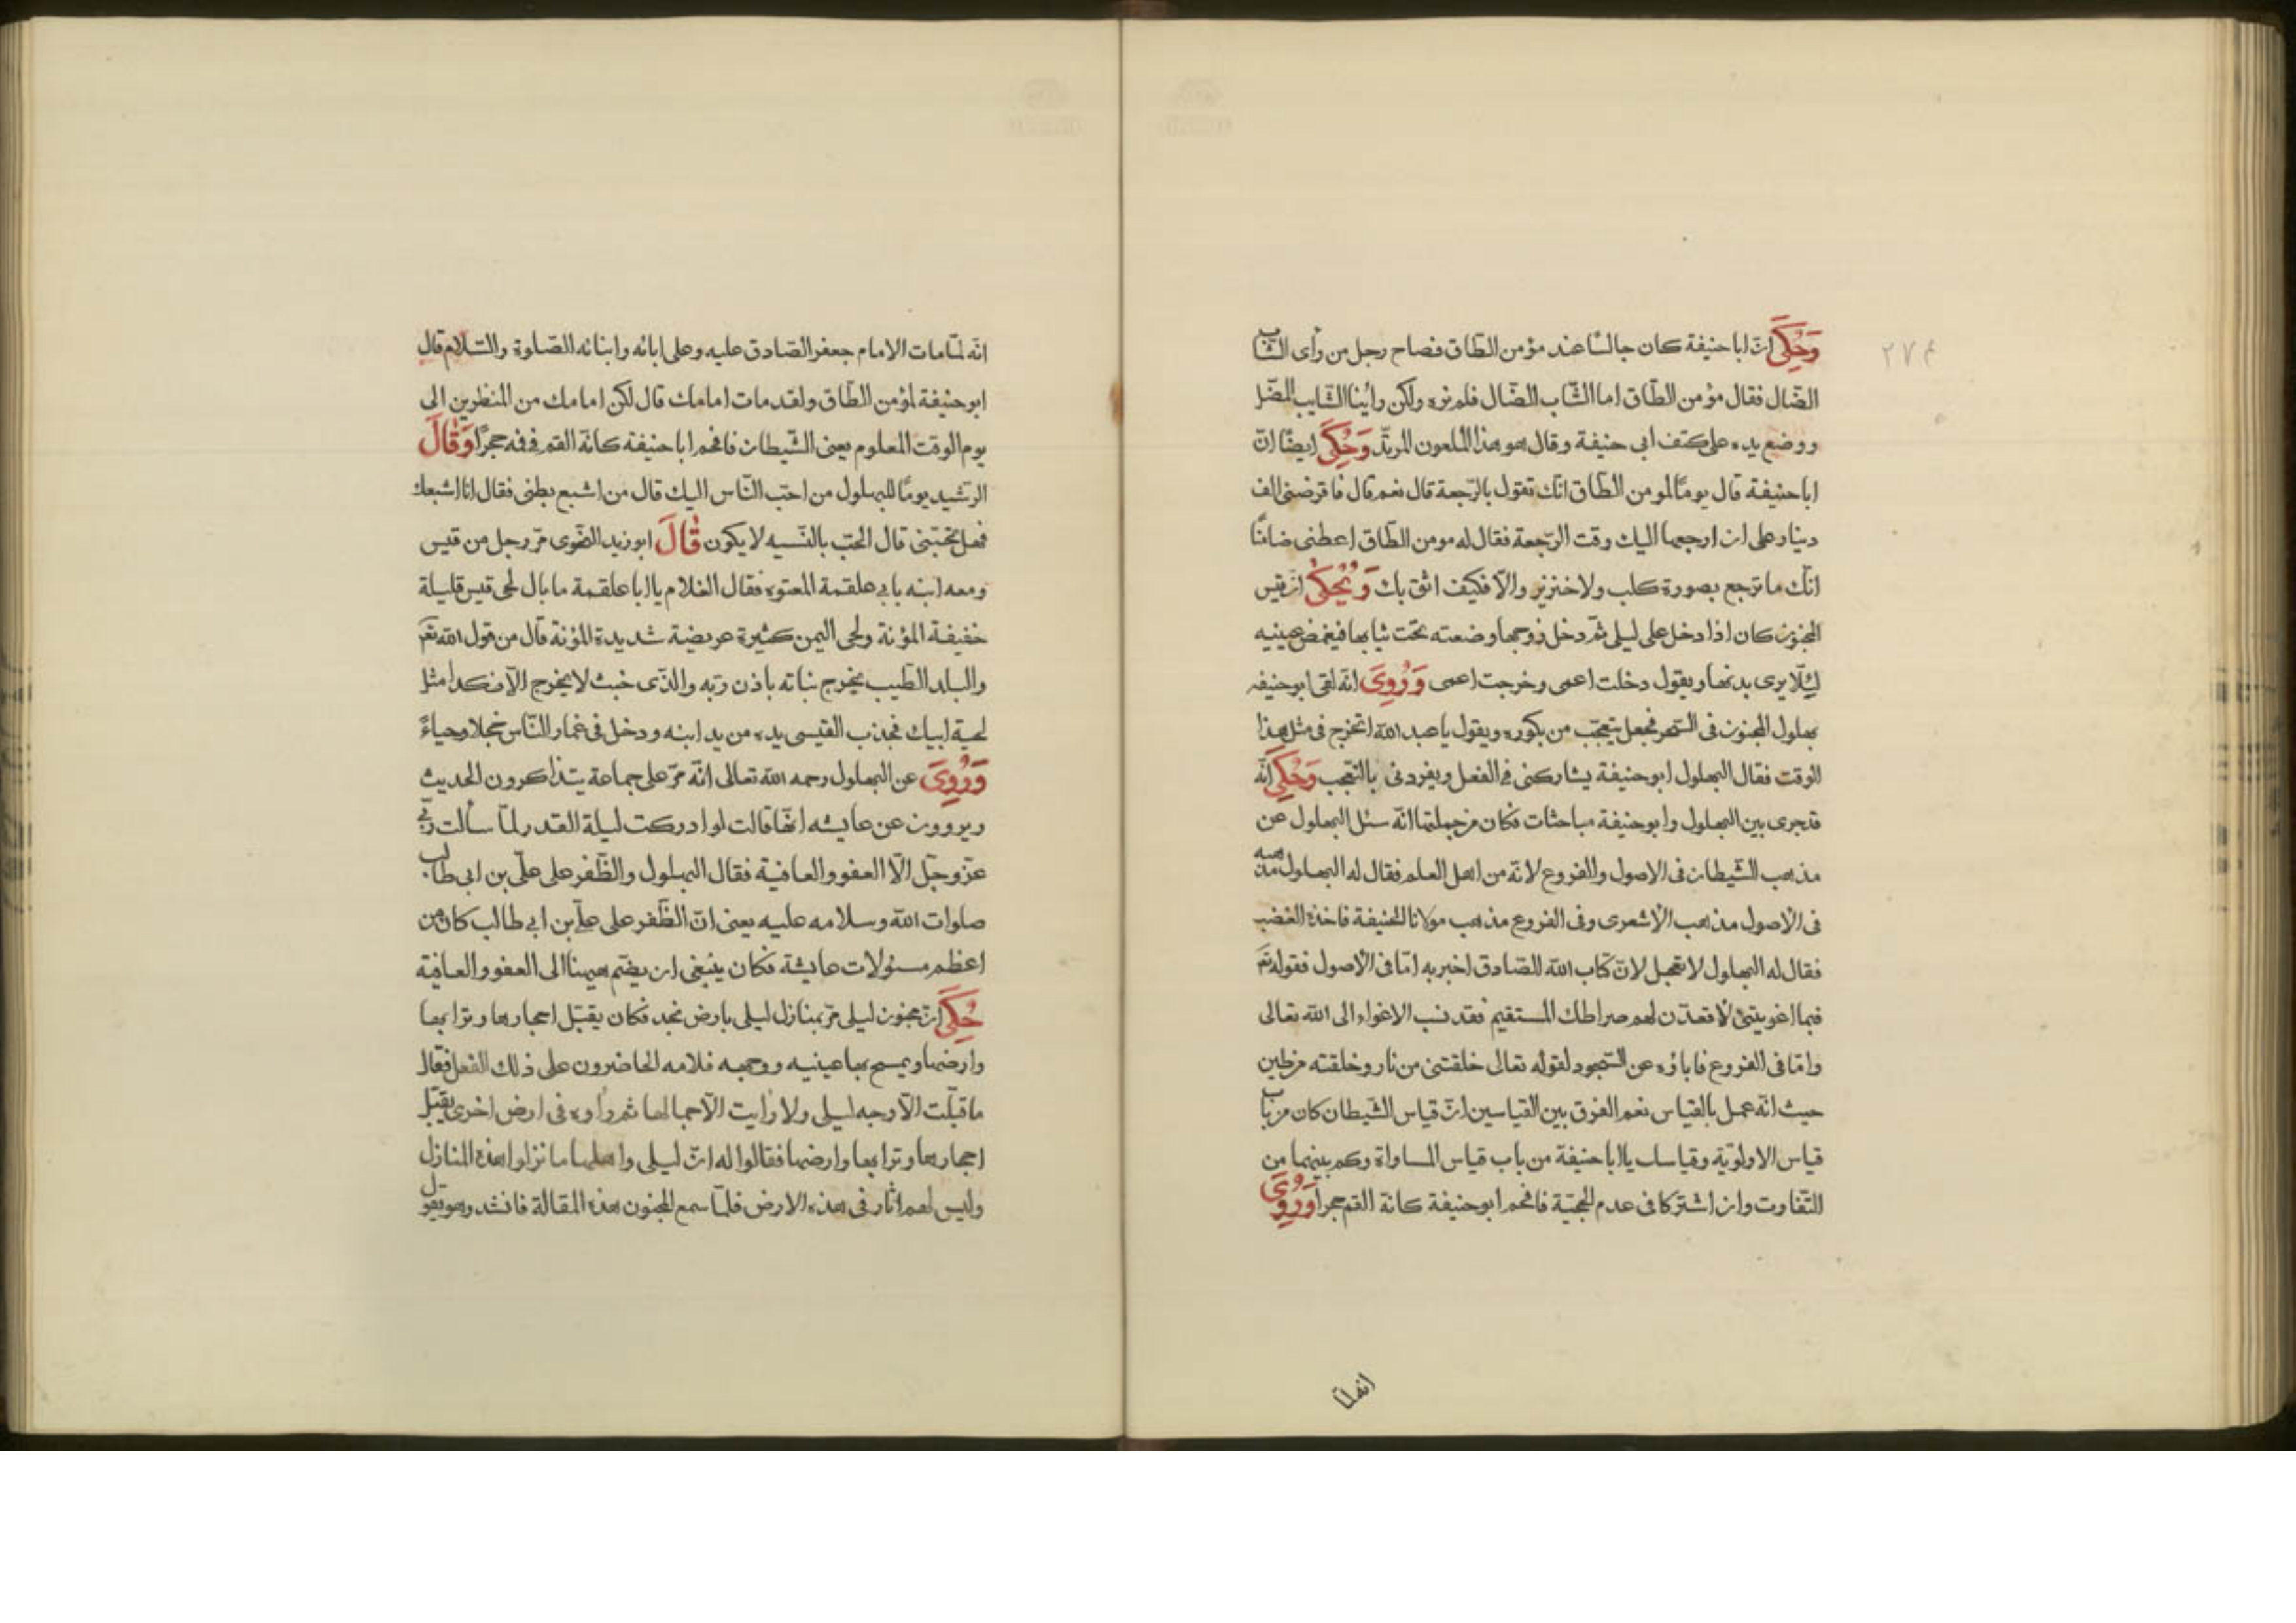 ٢٧٤
وَحُكِيَ انّ ابا حنيفة كان جالسًا عند مؤمن الطاق فصاح رجل من رأى الشاب
الضّال فقال مؤمن الطّاق اما الشّاب الضّال فلم نره ولكن رأينا الشايب المضل
ووضع يده على كتف ابى حنيفة وقال هو هذا الملعون المرتدّ وَحُكِيَ ايضًا انّ
ابا حنيفة قال يومًا لمومن الطّاق انّك تقول بالرّجعة قال نعم قال فاقرضنى الف
دينار على ان ارجعها اليك وقت الرّجعة فقال له مومن الطّاق اعطنى ضامنًا
انّك ما ترجع بصورة كلب ولا خنزير والّا فكيف اثق بك وَيُحْكىٰ ان قيس
المجنون كان اذا دخل على ليلى ثمّ دخل زوجها وضعته تحت ثيابها فيغمض عينيه
لئِلّا يرى بدنها ويقول دخلت اعمى وخرجت اعمى وَرُوِيَ انّه لقى ابو حنيفه
بهلول المجنون فى السّحر فجعل يتعجّب من بكوره ويقول يا عبد اللّه اتخرج فى مثل هذا
الوقت فقال البهلول ابو حنيفة يشاركنى فى الفعل ويفردنى بالتعجب وَحُكِيَ انّه
قد جرى بين البهلول وابو حنيفة مباحثات فكان من جملتها انّه سئل البهلول عن
مذهب الشّيطان فى الاصول والفروع لانّه من اهل العلم فقال له البهلول مذهبه
فى الاصول مذهب الاشعرى وفى الفروع مذهب مولانا الحنيفة فاخذه الغضب
فقال له البهلول لا تعجل لانّ كتاب اللّه الصّادق اخبر به امّا فى الاصول فقوله تعَ
فبما اغويتنى لاقعدّن لهم صراطك المستقيم فقد نسب الاغواء الى اللّه تعالى
وامّا فى الفروع فاباؤه عن السّجود لقوله تعالى خلقتنى من نار وخلقته من طين
حيث انّه عمل بالقياس نعم الفرق بين القياسين انّ قياس الشّيطان كان من باب
قياس الاولويّة وقياسك يا ابا حنيفة من باب قياس المساواة وكم بينهما من
التّفاوت وان اشتركا فى عدم الحجيّة فافحم ابو حنيفة كانّه القم حجرا وَرُوِيَ
انه لمّا
انّه لمّا مات الامام جعفر الصّادق عليه وعلى ابائه وابنائه الصّلوة والسّلام قال
ابو حنيفة لمؤمن الطّاق ولقد مات امامك قال لكن امامك من المنظرين الى
يوم الوقت المعلوم يعنى الشّيطان فافحم ابا حنيفة كانّه القم فى فه حجرًا وَقالَ
الرّشيد يومًا للبهلول من احبّ النّاس اليك قال من اشبع بطنى فقال انا اشبعك
فهل تحبّنى قال الحبّ بالنّسيه لا يكون قالَ ابو زيد النحوى مرّ رجل من قيس
ومعه ابنه بابى علقمة المعتوه فقال الغلام يا ابا علقمة ما بال لحى قيس قليلة
خفيفة المؤنة ولحى اليمن كثيرة عريضة شديدة المؤنة قال من قول اللّه تعَ
والبلد الطّيب يخرج نباته باذن ربّه والّذى خبث لا يخرج الّا نكدا مثل
لحية ابيك فجذب القيسى يده من يد ابنه ودخل فى غمار النّاس خجلا وحياءً
وَرُوِيَ عن البهلول رحمه اللّه تعالى انّه مرّ على جماعة يتذاكرون الحديث
ويروون عن عايشه انّها قالت لو ادركت ليلة القدر لما سألت ربّى
عزّ وجلّ الّا العفو والعافية فقال البهلول والظّفر على علّى بن ابى طالب
صلوات اللّه وسلامه عليه يعنى انّ الظّفر على علىّ بن ابى طالب كان من
اعظم مسئولات عايشة فكان ينبغى ان يضّم هيهنا الى العفو والعافية
حُكِيَ انّ مجنون ليلى مرّ بمنازل ليلى بارض نجد فكان يقبّل احجارها وترابها
وارضها ويمسح بها عينيه ووجهه فلامه الحاضرون على ذلك الفعل فقال
ما قبّلت الّا وجه ليلى ولا رأيت الّا جمالها ثم رأوه فى ارض اخرى يقبّل
احجارها وترابها وارضها فقالوا له انّ ليلى واهلها ما نزلوا هذه المنازل
وليس لهم اثار فى هذه الارض فلمّا سمع المجنون هذه المقالة فانشد وهو يقول